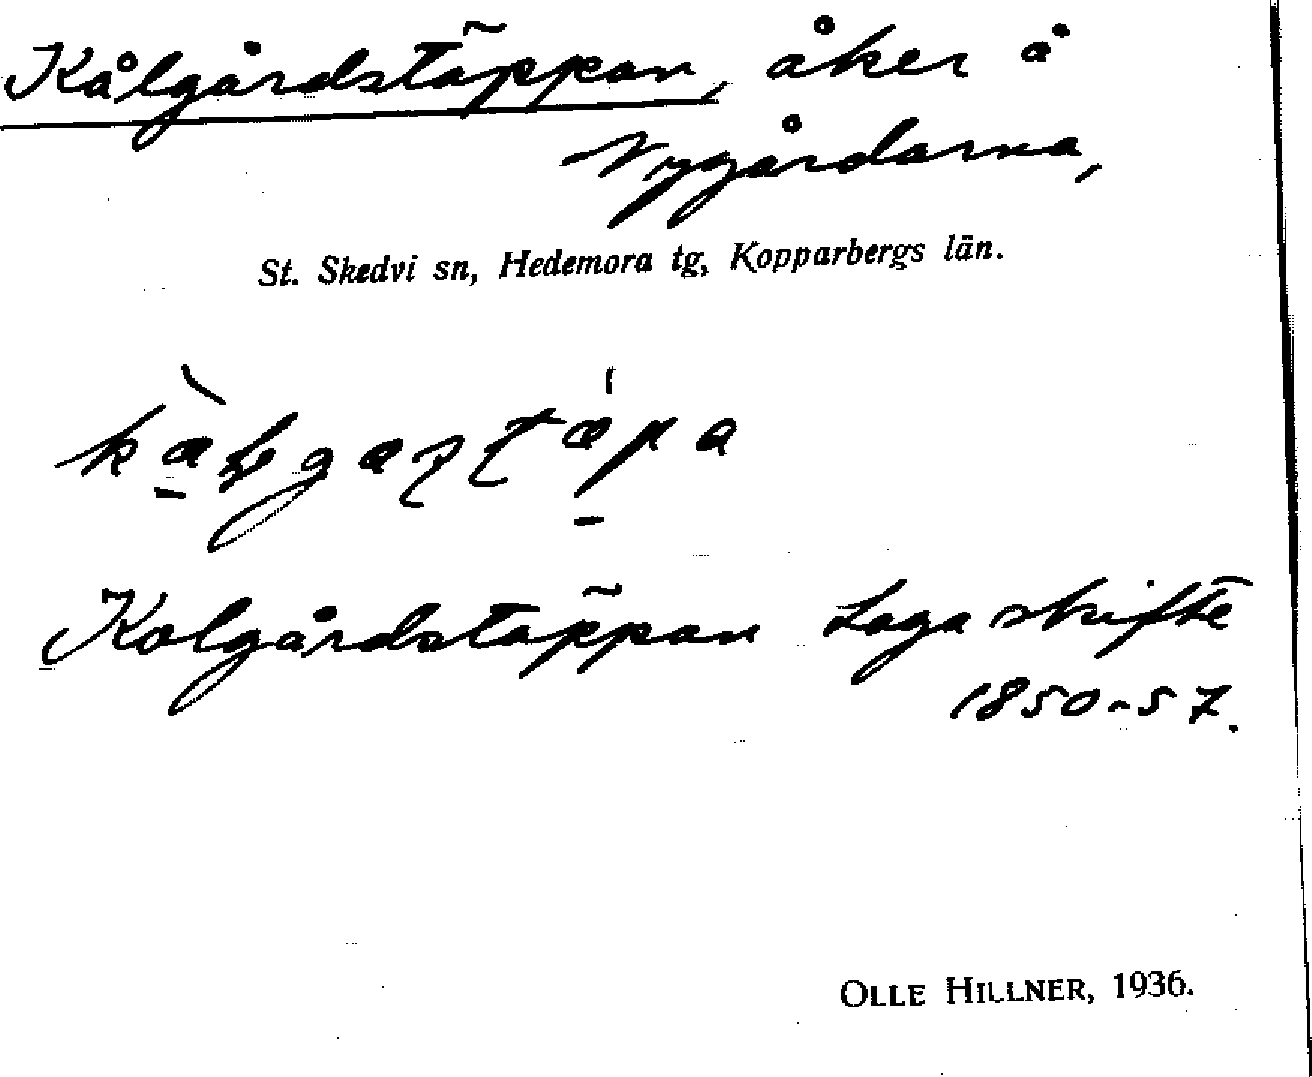 Kålgårdstäppan, åker å
Nygårdarna,
St. Skedvi sn, Hedemora tg, Kopparbergs län.
Kolgårdstäppan Laga skifte
1850-57.
OLLE HILLNER, 1936.